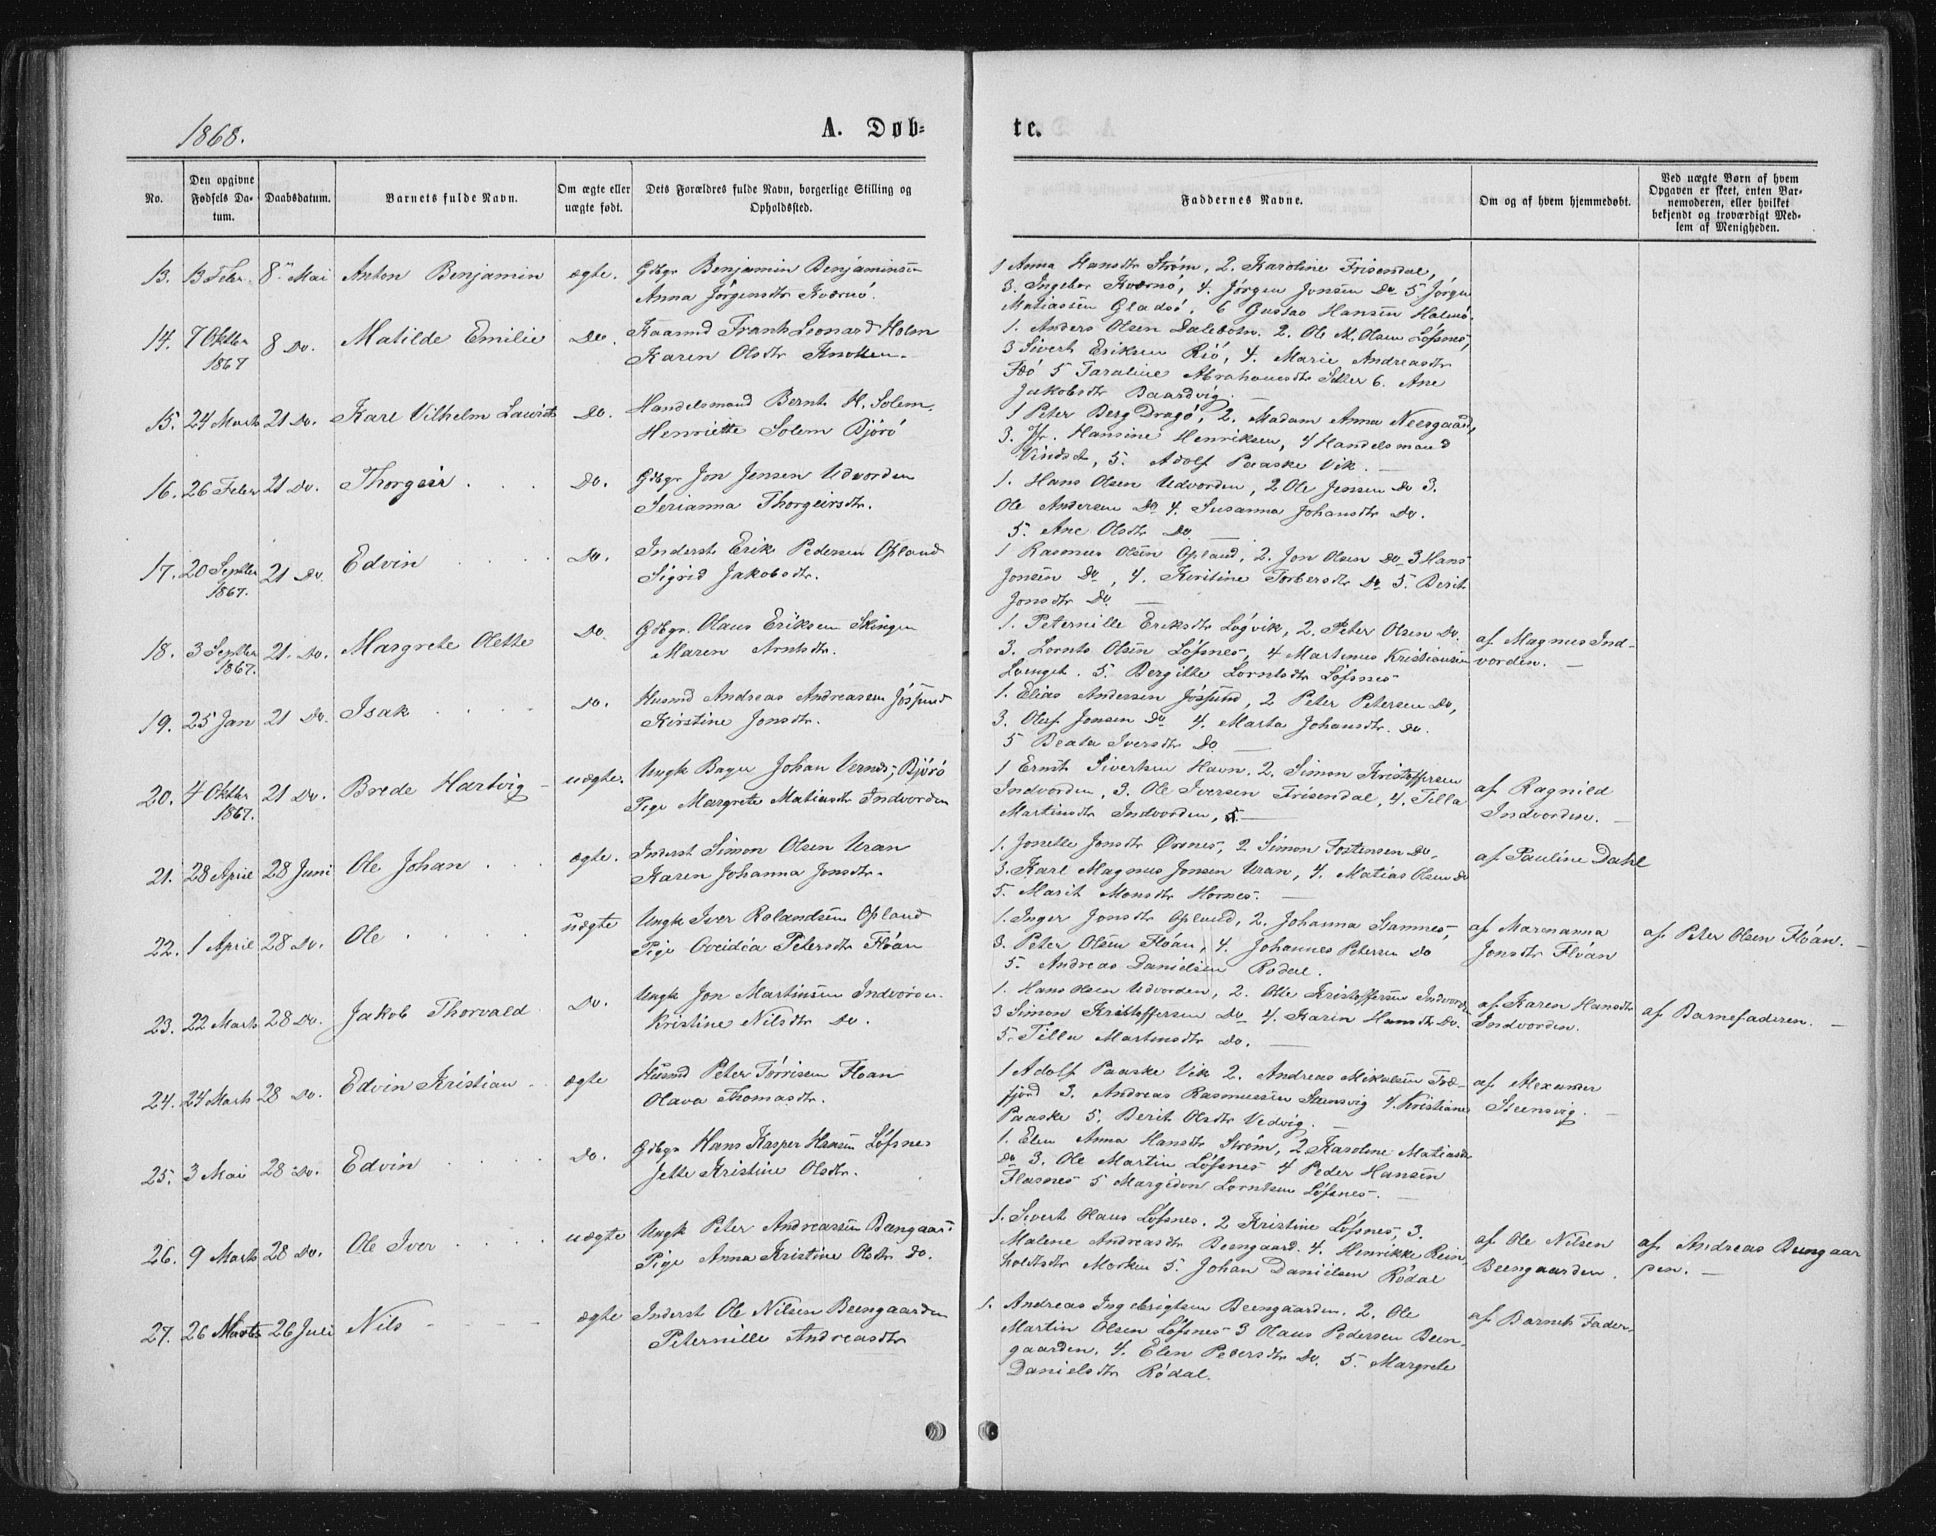 1868.
A. Døb-
te.
No.
Den opgivne Fødsels Datum.
Daabsdatum.
Barnets fulde Navn.
Om ægte eller uægte født.
Dets Forældres fulde Navn, borgerlige Stilling og Opholdssted.
Faddernes Navne.
Om og af hvem hjemmedøbt.
Ved uægte Børn af hvem Opgaven er skeet, enten Barnemoderen, eller hvilket bekjendt og troværdigt Medlem af Menigheden.
13. 13 Febr. 8de Mai Anton Benjamin ægte. Gdbgr Benjamin Benjaminsen
Anna Jørgensdtr Kværnö.
1 Anna Hansdtr Strøm, 2. Karoline Frisendal,
3. Ingebor Kværnö, 4. Jørgen Jonsen Do 5 Jørgen
Matiassen Gladsö, 6 Gustav Hansen Halmö.
14. 7 Oktbr 1867 8 Do. Matilde Emilie Do. Kaarmd Frank Leonard Holm
Karen Olsdtr Knotten.
1. Anders Olsen Dalebotn. 2. Ole M. Olsen Löfsnes,
3 Sivert Eriksen Risö, 4. Marie Andreasdtr
5 Taraline Abrahamsdtr Sæller 6. Ane
Jakobsdtr Baardvig.
15. 24 Marts 21 Do. Karl Vilhelm Laurits Do. Handelsmand Bernt H. Solem.
Henriette Solem Bjørö
1 Peter Berg Dragö, 2. Madam Anna Neesgaard,
3. Jfr. Hansine Henriksen, 4 Handelsmand
Vindset, 5. Adolf Paaske Vik.
16. 26 Febr 21 Do. Thorgeir Do. Gdbgr Jon Jensen Udvorden
Serianna Thorgeirsdtr.
1. Hans Olsen Udvorden, 2 Ole Jensen Do 3.
Ole Andersen Do 4. Susanna Johansdtr Do.
5. Ane Olsdtr Do
17. 20 Septbr 1867. 21 Do Edvin Do. Inderst Erik Pedersen Opland
Sigrid Jakobsdtr.
1 Rasmus Olsen Opland, 2. Jon Olsen Do 3 Hans
Jonsen Do, 4. Kiristine Torbersdtr Do 5. Berit
Jonsdtr Do.
18. 3 Septbr 1867. 21. Do. Margrete Olette Do. Gdbgr. Olaus Eriksen Skingen
Maren Arntsdtr.
1. Peternille Eriksdtr Lögvik, 2. Peter Olsen Do.
3. Lornts Olsen Löfsnes, 4 Martinus Kristiansen
Længet. 5. Bergitte Lorntsdtr Löfsnes
af Magnus Ind-
vorden.
19. 25 Jan 21 Do. Isak Do. Husmd Andreas Andreassen Jössund
Kirstine Jonsdtr.
1. Elias Andersen Jössund, 2 Peter Petersen Do,
3. Oluf Jonsen Do 4. Marta Johansdtr. Do.
5 Beata Iversdtr Do
20. 4 Oktbr 1867. 21 Do. Brede Hartvig uægte. Ungk Bager Johan Vernes, Bjørö
Pige Margrete Matiasdtr Indvorden
1 Ernst Sivertsen Havn. 2. Simon Kristoffersen
Indvorden, 3. Ole Iversen Frisendal, 4. Tilla
Martinsdtr Indvorden, 5
af Ragnild
Indvorden.
21. 28 April 28 Juni Ole Johan ægte. Inderst Simon Olsen Uran
Karen Johanna Jonsdtr.
1. Jonette Jonsdtr Ørsnes, 2 Simon Tostensen Do,
3. Karl Magnus Jonsen Uran, 4. Matias Olsen Do
5. Marit Monsdtr Hornes.
af Pauline Dahl
22. 1 April 28 Do. Ole uægte Ungk Iver Rolandsen Opland
Pige Oveidia Petersdtr Flöan
1. Inger Jonsdtr Opland, 2. Johanna Stamnes,
3. Peter Olsen Flöan, 4. Johannes Petersen Do
5. Andreas Danielsen Rödal.
af Marenanna
Jonsdtr Flöan
af Peter Olsen Flöan.
23. 22 Marts 28 Do. Jakob Thorvald Do. Ungk Jon Martinsen Indvorden.
Kristine Nilsdtr Do.
1. Hans Olsen Udvorden, 2. Ole Kristoffersen Indvorden
3 Simon Kristoffersen Do 4. Karin Hansdtr Do.
5. Tilla Martinsdtr Do.
af Karen Hansdtr
Indvorden.
af Barnefaderen.
24. 24 Marts 28 Do. Edvin Kristian ægte Husmd Peter Törrisen Floan
Olava Thomasdtr.
1 Adolf Paaske Vik 2. Andreas Mikalsen Træ-
fjord 3. Andreas Rasmussen Steensvig 4. Kristiane
Paaske 5. Berit Olsdtr Vedvig.
af Alexander
Steensvig.
25. 3 Mai 28 Do. Edvin Do. Gdbgr Hans Kasper Hansen Löfsnes
Jette Kristine Olsdtr.
1. Elen Anna Hansdtr Strøm, 2 Karoline Matiasdtr
Do. 3. Ole Martin Löfsnes 4 Peder Hansen
Flasnes 5 Margidon Lorntsen Löfsnes.
26. 9 Marts 28 Do. Ole Iver uægte Ungk Peter Andreassen Beengaard
Pige Anna Kristine Olsdtr Do.
1. Sivert Olaus Löfsnes. 2 Kristine Löfsnes, 3.
Malene Andreasdtr Beengaard. 4. Hinrikke Rein-
holtsdtr Morken 5. Johan Danielsen Rödal
af Ole Nilsen
Beengaarden.
af Andreas Beengaar
den.
27. 26 Marts 26 Juli Nils ægte Inderst Ole Nilsen Beengaarden
Peternille Andreasdtr
1. Andreas Ingebrigtsen Beengaarden. 2. Ole
Martin Olsen Löfsnes 3 Olaus Pedersen Been-
gaarden. 4. Elen Pedersdtr Do. 5. Margrete
Danielsdtr Rödal.
af Barnets Fader.